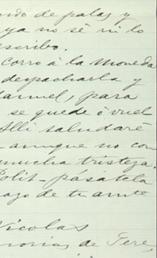 ondo de palas y
ya no sé ni lo
escribo.
Corro á la Moneda
despacharla y
Carmel, para
se quede ó vuel
Alli saludaré
aunque no con
mucha tristeza.
Polit- pásatela
hago de ti ante
Nicolas